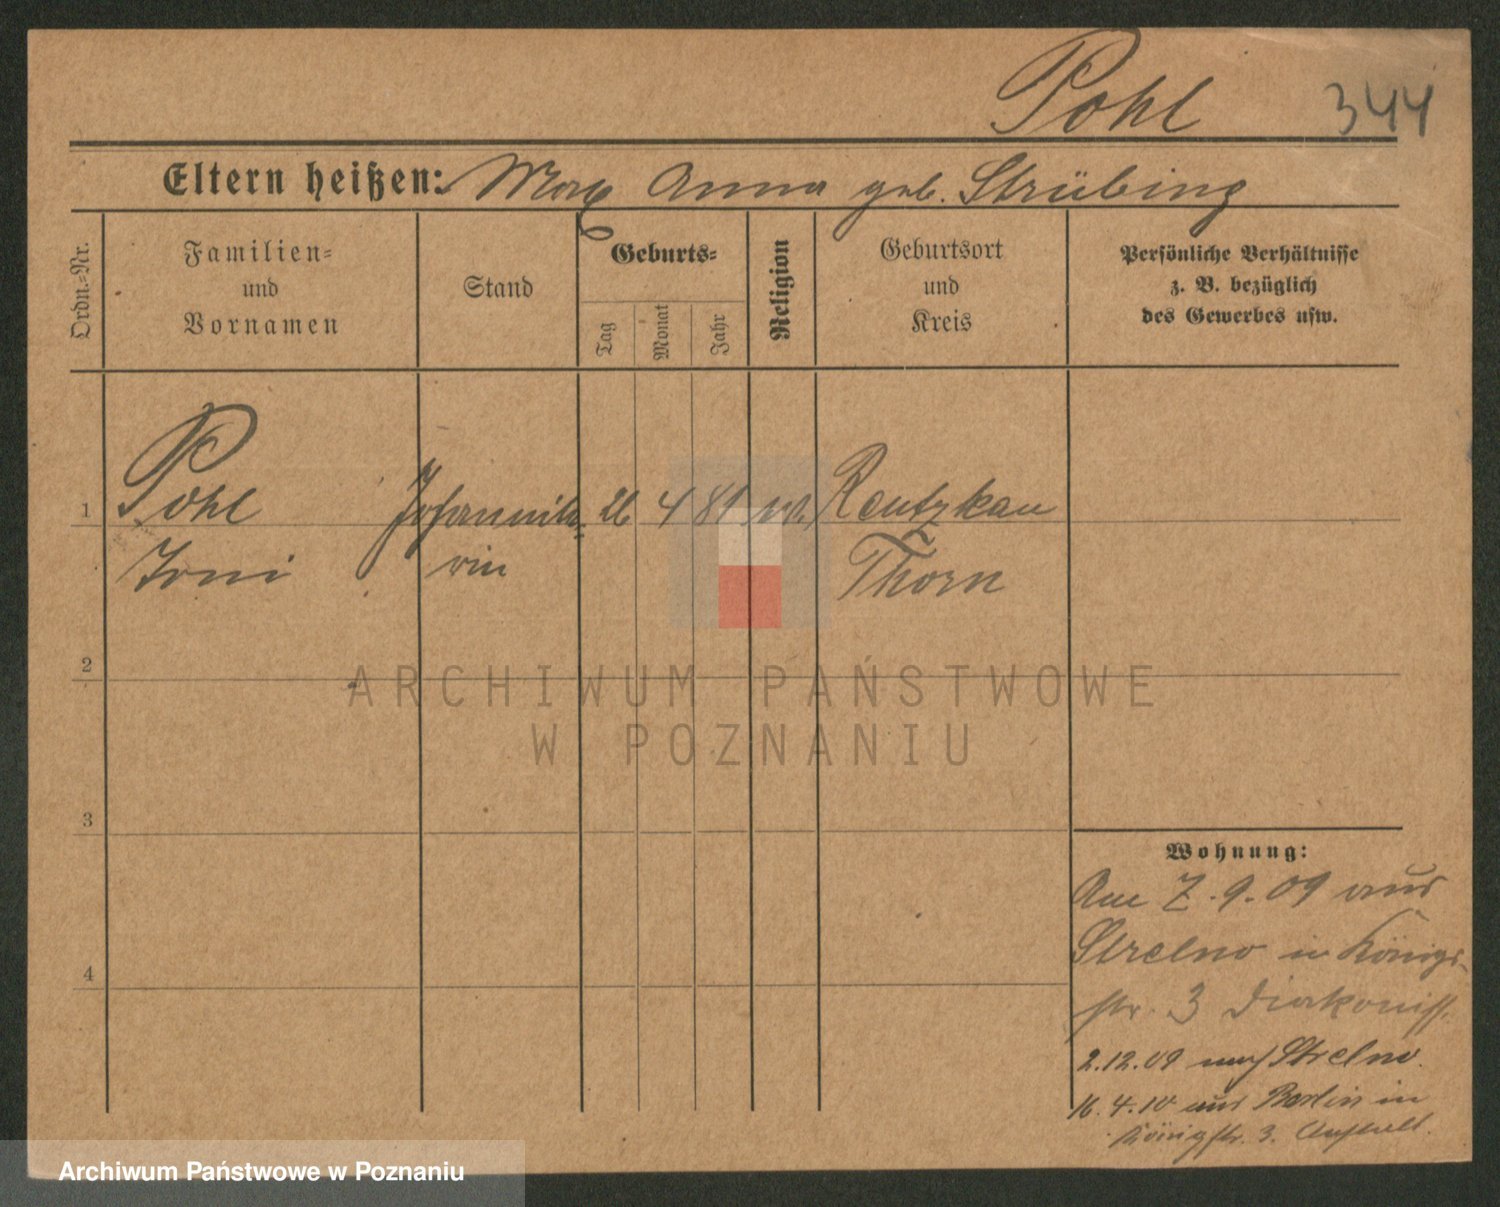 Pohl 344
Eltern heißen: Max Anna geb. Strübing
Ordn.-Nr.
Familien-
und
Vornamen
Stand
Geburts-
Tag
Monat
Jahr
Religion
Geburtsort
und
Kreis
Persönliche Verhältnisse
z. B. bezüglich
des Gewerbes usw.
1 Pohl Johannite- 26 4 81 ev. Rentzkau
Irmi rin Thorn
2
3
4
Wohnung:
Am 7.9.09 aus
Strelno in Königs-
str. 3 Diakoniss.
2.12.09 nach Strelno.
16.4.10 aus Berlin in
Königstr. 3.
ARCHIWUM PAŃSTWOWE
W POZNANIU
Archiwum Państwowe w Poznaniu